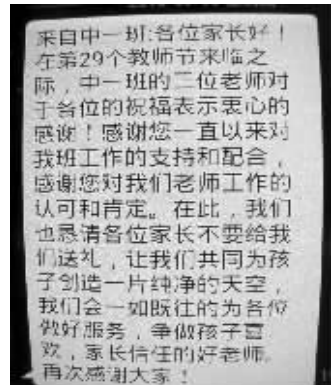 来自中一班:各位家长好！
在第29个教师节来临之
际，中一班的三位老师对
于各位的祝福表示衷心的
感谢！感谢您一直以来对
我班工作的支持和配合，
感谢您对我们老师工作的
认可和肯定。在此，我们
也恳请各位家长不要给我
们送礼，让我们共同为孩
子创造一片纯净的天空，
我们会一如既往的为各位
做好服务，争做孩子喜
欢，家长信任的好老师。
再次感谢大家！